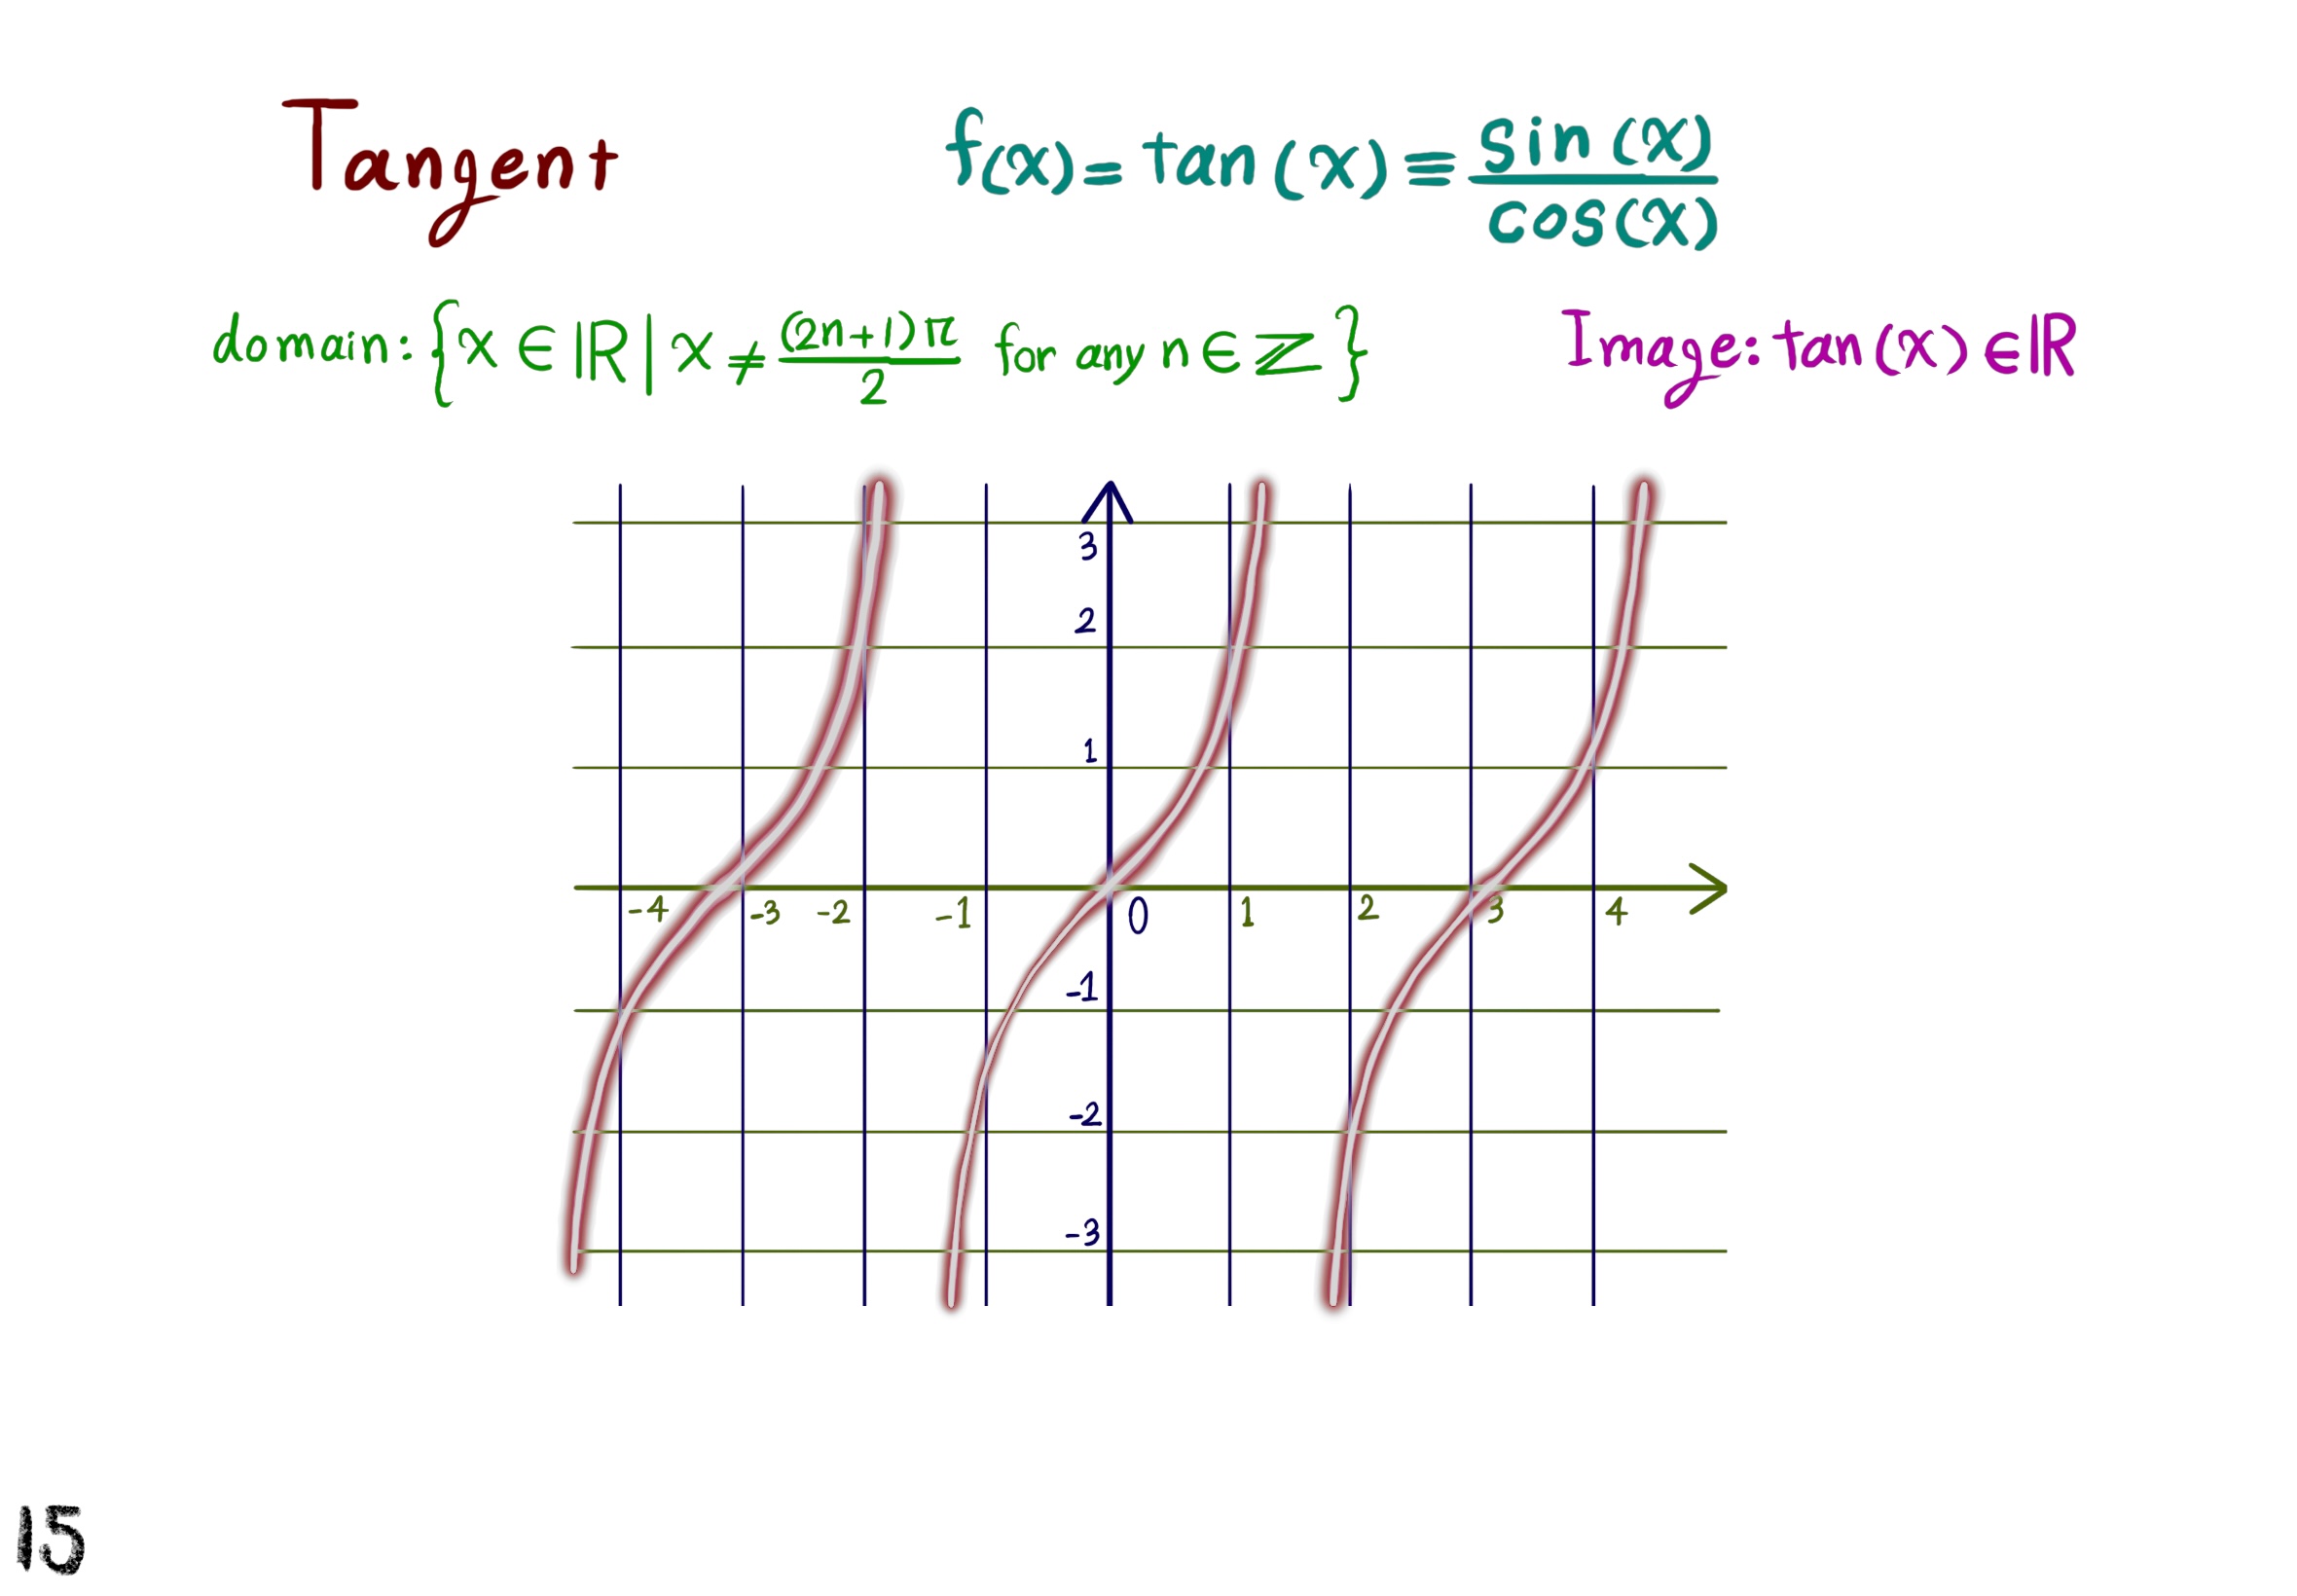 Tangent
f(x)=tan(x)≡sin(x)/cos(x)
domain:{x∈ℝ|x≠(2n+1)π/2 for any n∈ℤ}
Image:tan(x)∈ℝ
3
2
1
-4 -3 -2 -1 0 1 2 3 4
-1
-2
-3
15